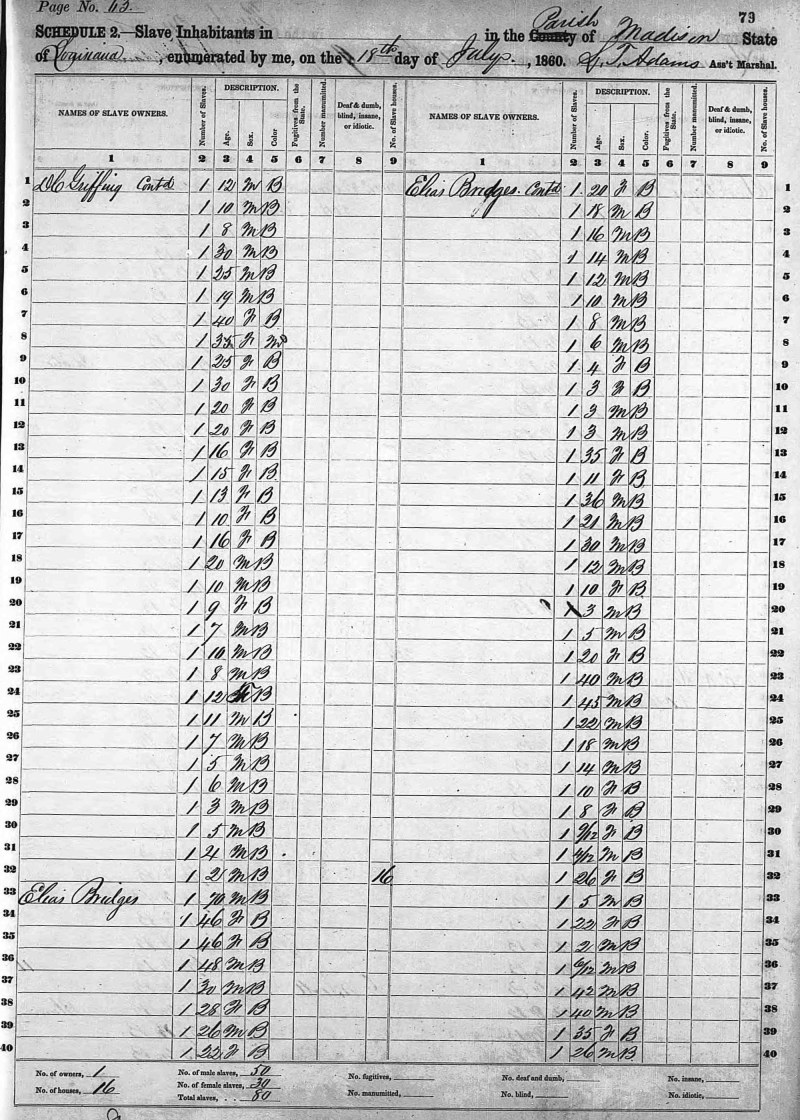 Page No. 63
79
SCHEDULE 2.—Slave Inhabitants in in the County Parish of Madison State
of Louisiana, enumerated by me, on the 18th day of July, 1860. S. T. Adams Ass't Marshal.
NAMES OF SLAVE OWNERS. Number of Slaves. DESCRIPTION. Age. Sex. Color Fugitives from the State. Number manumitted. Deaf & dumb, blind, insane, or idiotic. No. of Slave houses. NAMES OF SLAVE OWNERS. Number of Slaves. DESCRIPTION. Age. Sex. Color. Fugitives from the State. Number manumitted. Deaf & dumb, blind, insane, or idiotic. No. of Slave houses.
1 2 3 4 5 6 7 8 9 1 2 3 4 5 6 7 8 9
1 D C Griffing Contd 1 12 M B Elias Bridges Contd 1 20 F B 1
2 1 10 M B 1 18 M B 2
3 1 8 M B 1 16 M B 3
4 1 30 M B 1 14 M B 4
5 1 25 M B 1 12 M B 5
6 1 19 M B 1 10 M B 6
7 1 40 F B 1 8 M B 7
8 1 35 F M 1 6 M B 8
9 1 25 F B 1 4 F B 9
10 1 30 F B 1 3 F B 10
11 1 20 F B 1 3 M B 11
12 1 20 F B 1 3 M B 12
13 1 16 F B 1 35 F B 13
14 1 15 F B 1 11 F B 14
15 1 13 F B 1 36 M B 15
16 1 10 F B 1 21 M B 16
17 1 16 F B 1 30 M B 17
18 1 20 M B 1 12 M B 18
19 1 10 M B 1 10 F B 19
20 1 9 F B 1 3 M B 20
21 1 7 M B 1 5 M B 21
22 1 10 M B 1 20 F B 22
23 1 8 M B 1 40 M B 23
24 1 12 B 1 45 M B 24
25 1 11 M B 1 22 M B 25
26 1 7 M B 1 18 M B 26
27 1 5 M B 1 14 M B 27
28 1 6 M B 1 10 F B 28
29 1 3 M B 1 8 F B 29
30 1 5 M B 1 9/12 F B 30
31 1 4 M B 1 4/12 M B 31
32 1 2 M B 16 1 26 F B 32
33 Elias Bridges 1 70 M B 1 5 M B 33
34 1 46 F B 1 22 F B 34
35 1 46 F B 1 2 M B 35
36 1 48 M B 1 6/12 M B 36
37 1 30 M B 1 42 M B 37
38 1 28 F B 1 40 M B 38
39 1 26 M B 1 35 F B 39
40 1 22 F B 1 26 M B 40
No. of owners, 1 No. of male slaves, 50 No. fugitives, No. deaf and dumb, No. insane,
No. of houses, 16 No. of female slaves, 30 No. manumitted, No. blind, No. idiotic,
Total slaves, 80